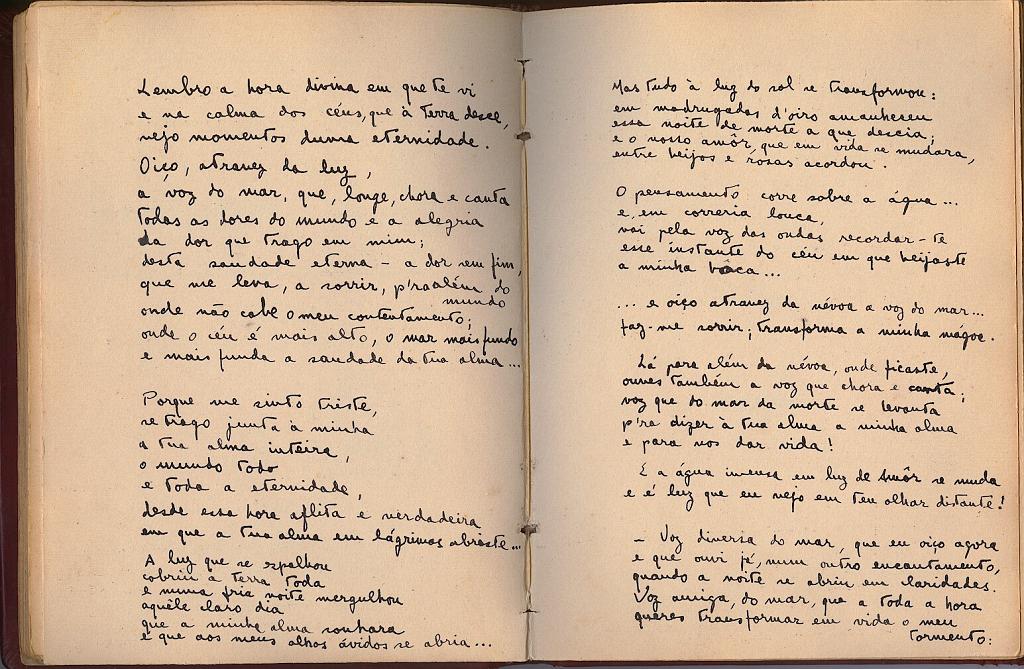 Lembro a hora divina em que te vi
e na calma dos céus, que à terra desce,
vejo momentos duma eternidade.
Oiço, atravez da luz,
a voz do mar, que, longe, chora e canta
todas as dores do mundo e a alegria
da dor que trago em mim;
desta saudade eterna - a dor sem fim,
que me leva, a sorrir, p'ra além do
mundo
onde não cabe o meu contentamento;
onde o céu é mais alto, o mar mais fundo
e mais funda a saudade da tua alma...
Porque me sinto triste,
se trago junta à minha
a tua alma inteira,
o mundo todo
e toda a eternidade,
desde essa hora aflita e verdadeira
em que a tua alma em lágrimas abriste...
A luz que se espalhou
cobriu a terra toda
e numa fria noite mergulhou
aquêle claro dia
que a minha alma sonhara
e que aos meus olhos ávidos se abria...
Mas tudo à luz do sol se transformou:
em madrugadas d'oiro amanheceu
essa noite de morte a que descia;
e o nosso amôr, que em vida se mudara,
entre beijos e rosas acordou.
O pensamento corre sobre a água...
e, em correria louca,
vai pela voz das ondas recordar-te
esse instante do céu em que beijaste
a minha bôca...
... e oiço atravez da névoa a voz do mar...
faz-me sorrir; transforma a minha mágoa.
Lá para além da névoa, onde ficaste,
ouves também a voz que chora e canta;
voz que do mar da morte se levanta
p'ra dizer à tua alma a minha alma
e para nos dar vida!
E a água imensa em luz de Amôr se muda
e é luz que eu vejo em teu olhar distante!
- Voz diversa do mar, que eu oiço agora
e que ouvi já, num outro encantamento,
quando a noite se abriu em claridades.
Voz amiga, do mar, que a toda a hora
queres transformar em vida o meu
tormento: